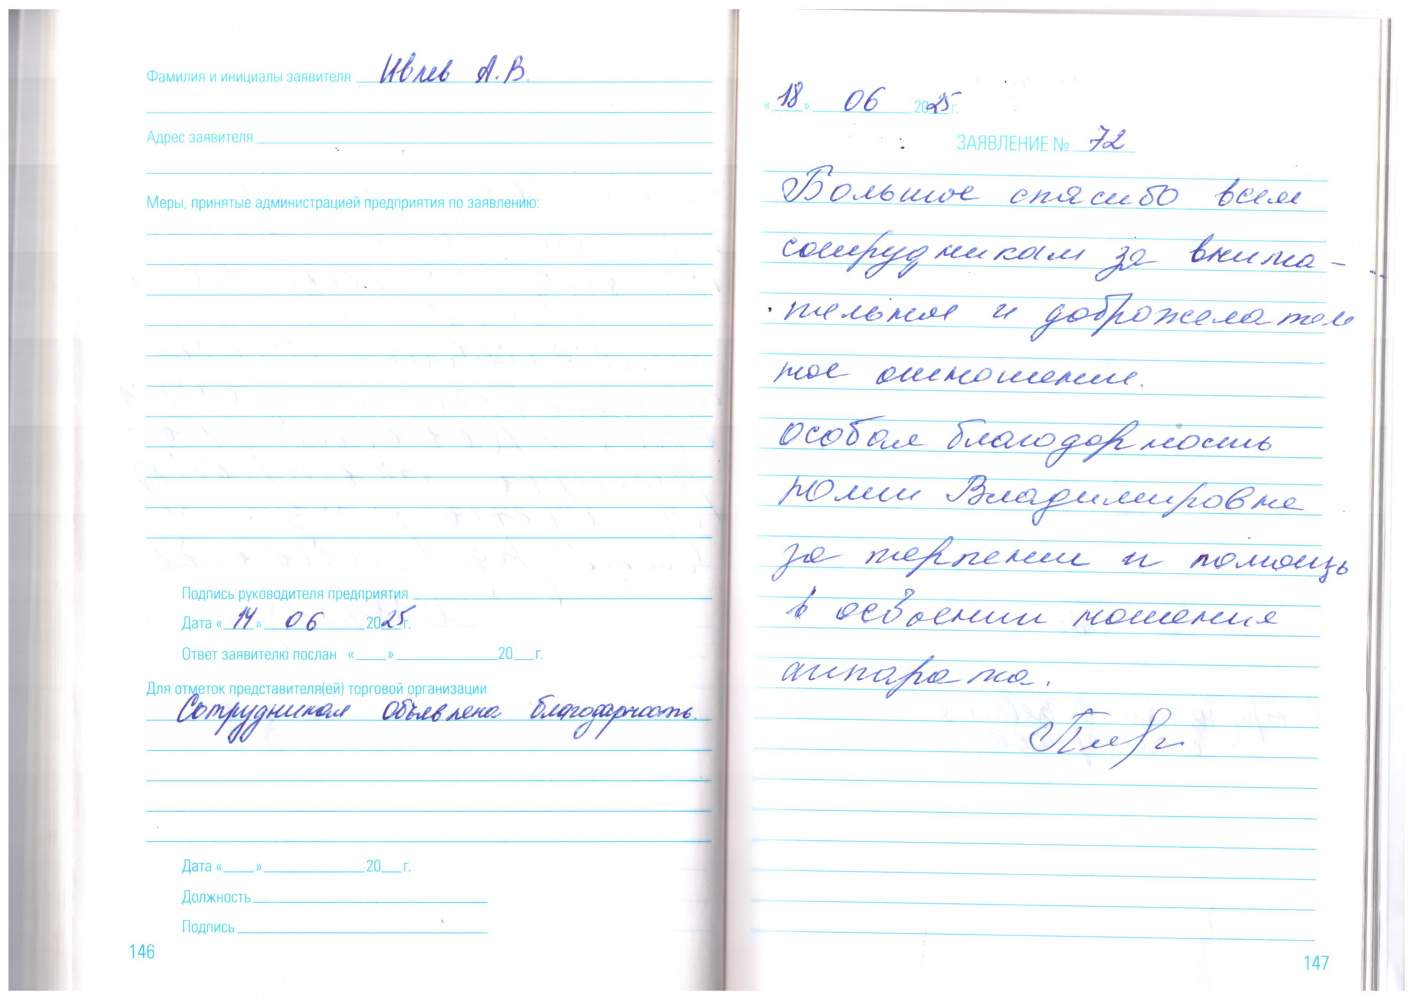 Фамилия и инициалы заявителя Ивлев А.В.
Адрес заявителя
Меры, принятые администрацией предприятия по заявлению:
Подпись руководителя предприятия
Дата «14» 06 2025г.
Ответ заявителю послан « » 20 г.
Для отметок представителя(ей) торговой организации
Сотрудникам объявлена благодарность.
Дата « » 20 г.
Должность
Подпись
146
«18» 06 2025г.
ЗАЯВЛЕНИЕ № 72
Большое спасибо всем
сотрудникам за внима-
тельное и доброжелатель
ное отношение.
особая благодарность
Владимировне
за терпение и помощь
в освоении ношения
аппарата.
147